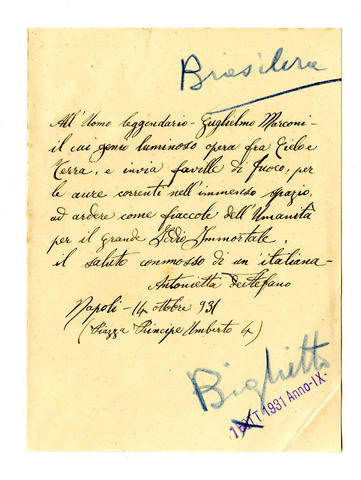 Brasilera
All'Uomo leggendario - Guglielmo Marconi -
il cui genio luminoso opera fra Cielo e
Terra, e invia favelle di fuoco, per
le aure correnti nell'immenso spazio,
ad ardere come fiaccole dell'Umanità
per il grande Iddio Immortale,
il saluto commosso di un'italiana -
Antonietta De Stefano
Napoli - 14 ottobre 931
(Piazza Principe Umberto 4)
Biglietto
OTT 1931 Anno-IX-